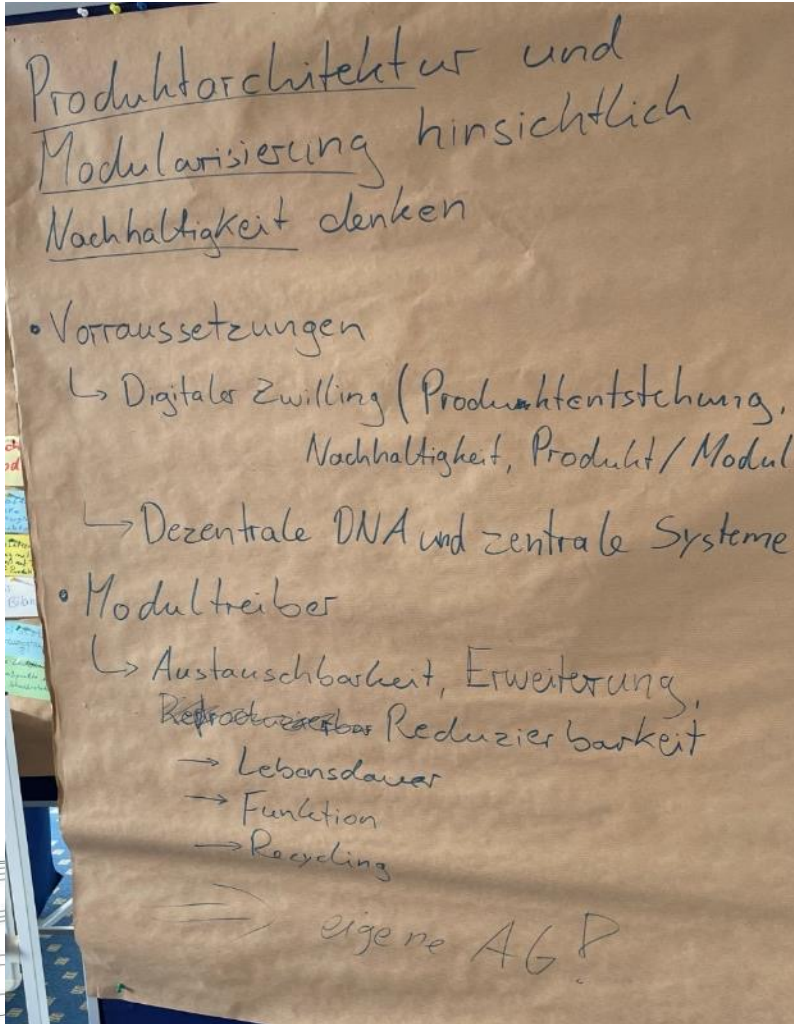 Produktarchitektur und
Modularisierung hinsichtlich
Nachhaltigkeit denken
• Vorraussetzungen
↳ Digitaler Zwilling (Produktentstehung,
Nachhaltigkeit, Produkt/Modul
↳ Dezentrale DNA und zentrale Systeme
• Modultreiber
↳ Austauschbarkeit, Erweiterung,
Reduzierbarkeit
→ Lebensdauer
→ Funktion
→ Recycling
⇒ eigene AG?